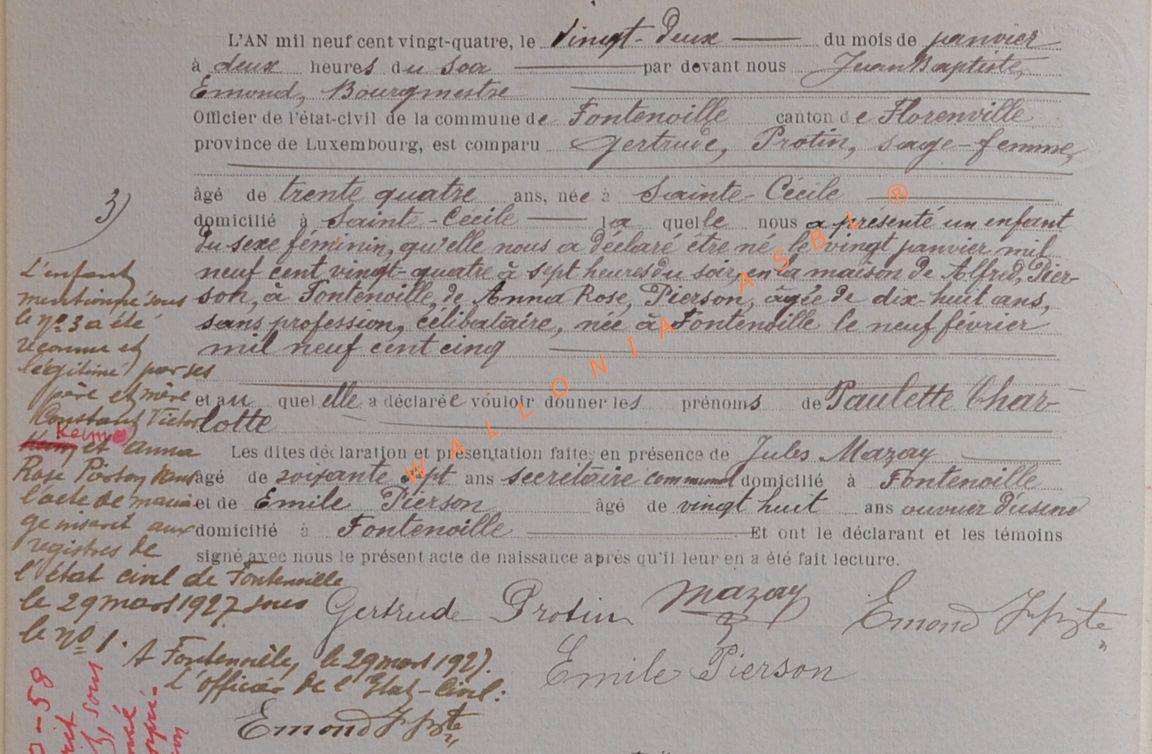 L'AN mil neuf cent vingt-quatre, le vingt-deux du mois de janvier
à deux heures du soir par devant nous Jean Baptiste,
Emond, Bourgmestre
Officier de l'état-civil de la commune de Fontenoille canton de Florenville
province de Luxembourg, est comparu Gertrude, Protin, sage-femme,
âgé de trente quatre ans, née à Sainte-Cécile
domicilié à Sainte-Cécile laquelle nous a présenté un enfant
du sexe féminin, qu'elle nous a déclaré être né, le vingt janvier mil
neuf cent vingt-quatre à sept heures du soir, en la maison de Alfred, Pier-
son, à Fontenoille, de Anna Rose, Pierson, âgée de dix-huit ans,
sans profession, célibataire, née à Fontenoille le neuf février
mil neuf cent cinq
et au quel elle a déclarée vouloir donner les prénoms de Paulette Char-
lotte
Les dites déclaration et présentation faites en présence de Jules Mazay
âgé de soixante sept ans secrétaire communal domicilié à Fontenoille
et de Emile Pierson âgé de vingt huit ans ouvrier d'usine
domicilié à Fontenoille Et ont le déclarant et les témoins
signé avec nous le présent acte de naissance après qu'il leur en a été fait lecture.
Gertrude Protin Mazay Emond J Bte
Emile Pierson
3)
L'enfant
mentionné sous
le n° 3 a été
reconnu et
légitimé par ses
père et mère
Constant Victor
Keim
et Anna
Rose Pierson dans
l'acte de maria-
ge inscrit aux
registres de
l'état civil de Fontenoille
le 29 mars 1927 sous
le n° 1.
A Fontenoille, le 29 mars 1927.
L'officier de l'Etat-Civil:
Emond J Bte
58
sous
WALLONIA ASBL ®